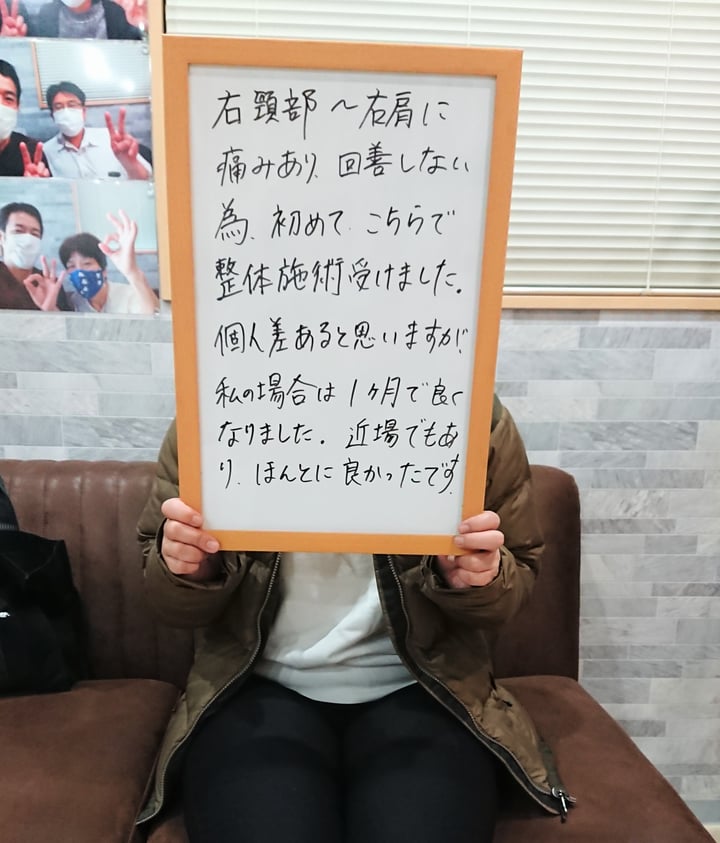 右頸部〜右肩に
痛みあり、回善しない
為、初めて、こちらで
整体施術受けました。
個人差あると思いますが、
私の場合は1ヶ月で良く
なりました。近場でもあ
り、ほんとに良かったです。